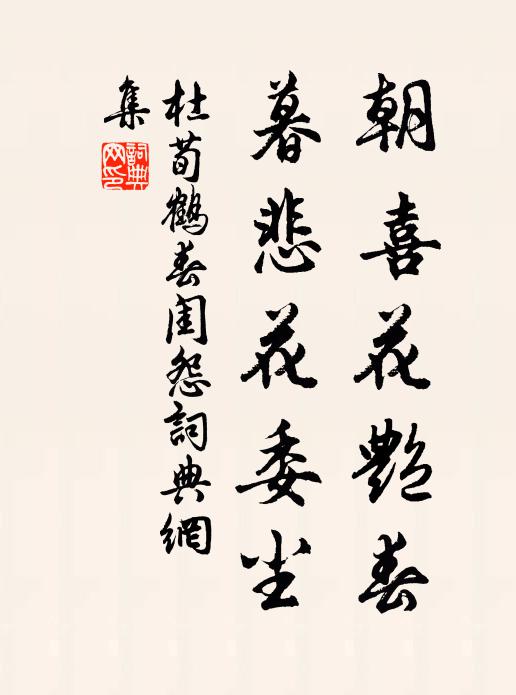 朝喜花艷春
暮悲花委尘
杜荀鶴春閨怨詞典網
集
詞典
网印